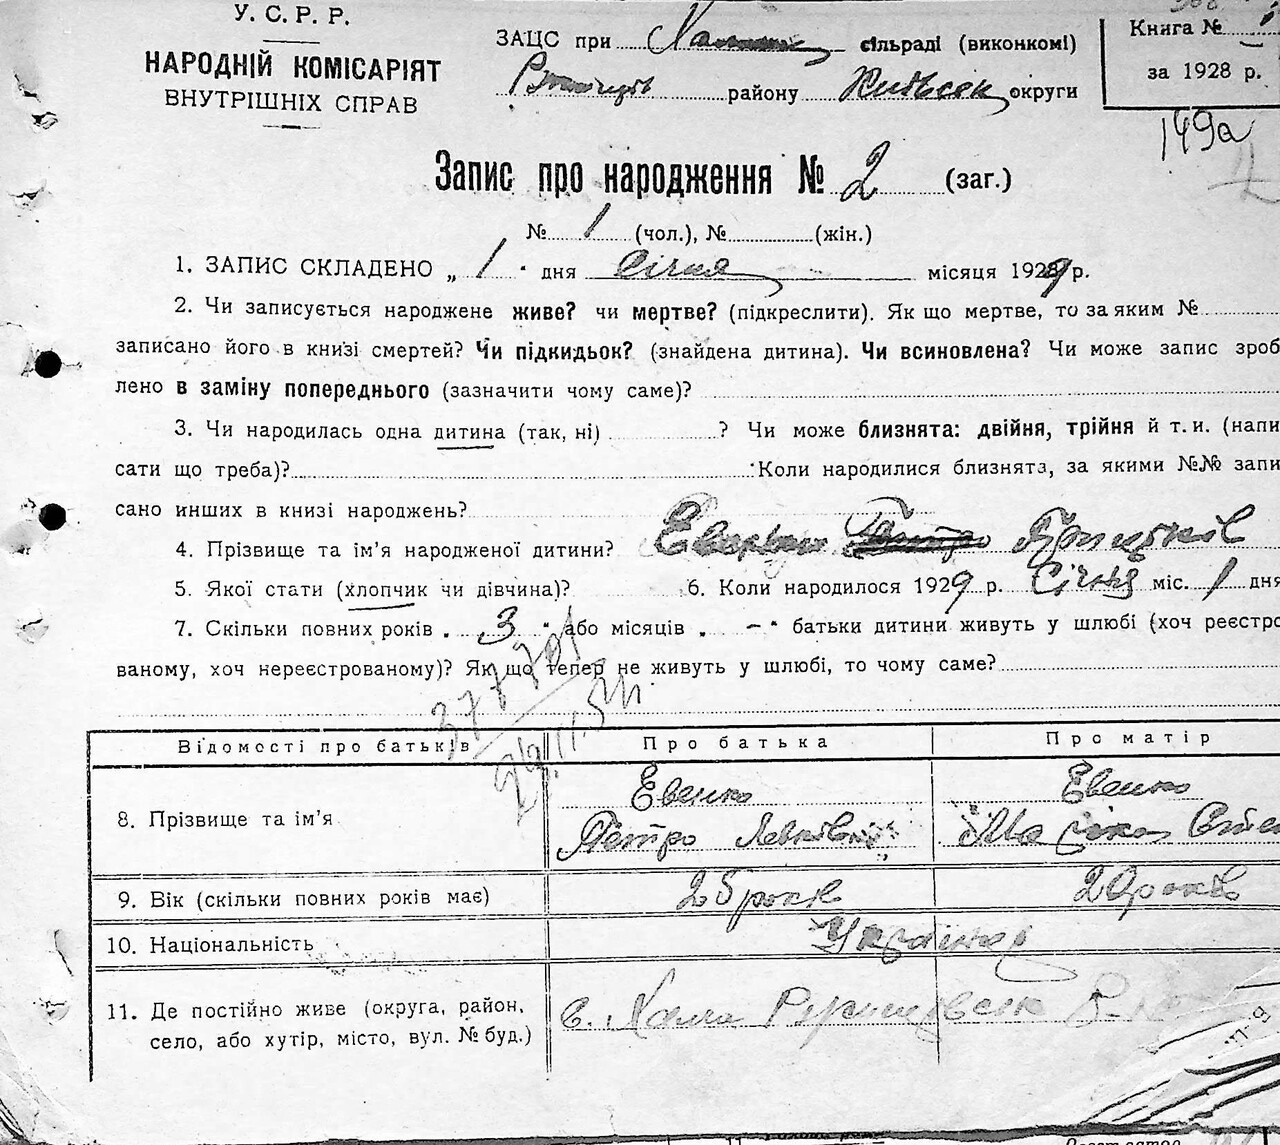 У. С. Р. Р.
НАРОДНІЙ КОМІСАРІЯТ
ВНУТРІШНІХ СПРАВ
ЗАЦС при сільраді (виконкомі)
району округи
Книга №
за 1928 р.
149а
Запис про народження № 2 (заг.)
№ 1 (чол.), № (жін.)
1. ЗАПИС СКЛАДЕНО „ 1 " дня Січня місяця 1929 р.
2. Чи записується народжене живе? чи мертве? (підкреслити). Як що мертве, то за яким №
записано його в книзі смертей? Чи підкидьок? (знайдена дитина). Чи всиновлена? Чи може запис зроб
лено в заміну попереднього (зазначити чому саме)?
3. Чи народилась одна дитина (так, ні) ? Чи може близнята: двійня, трійня й т. и. (напи
сати що треба)? Коли народилися близнята, за якими №№ запи
сано инших в книзі народжень?
4. Прізвище та ім'я народженої дитини? Евенко Петро
5. Якої стати (хлопчик чи дівчина)? 6. Коли народилося 1929 р. Січня міс. 1 дня
7. Скільки повних років „ 3 " або місяців „ – " батьки дитини живуть у шлюбі (хоч реєстро
ваному, хоч нереєстрованому)? Як що тепер не живуть у шлюбі, то чому саме?
Відомості про батьків Про батька Про матір
8. Прізвище та ім'я Евенко Петро Евенко
9. Вік (скільки повних років має) 25 років 20 років
10. Національність
11. Де постійно живе (округа, район,
село, або хутір, місто, вул. № буд.) с.